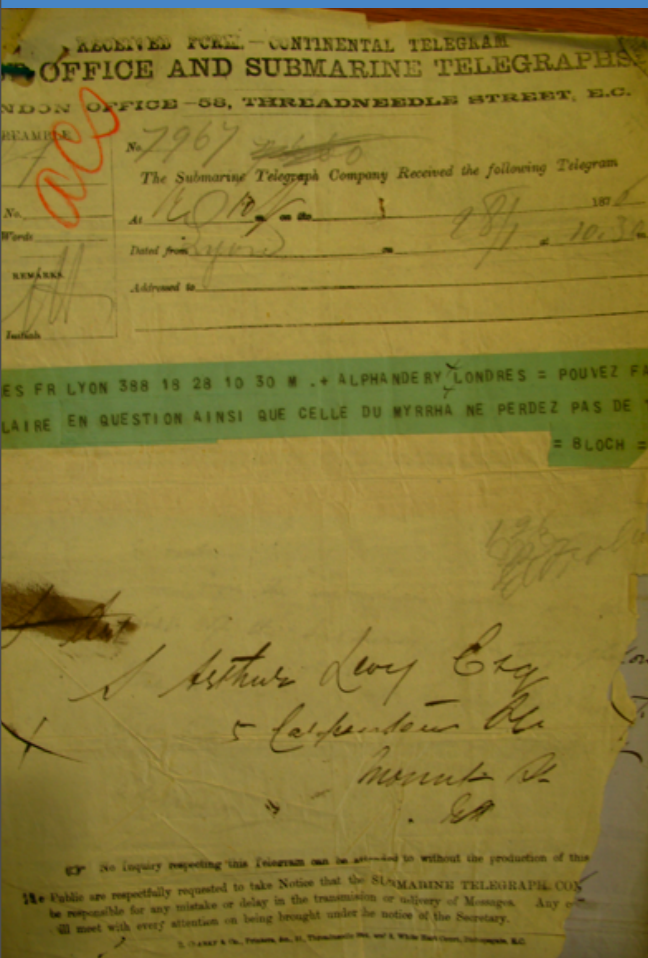 RECEIVED FORM.—CONTINENTAL TELEGRAM
OFFICE AND SUBMARINE TELEGRAPHS
NDON OFFICE—58, THREADNEEDLE STREET, E.C.
PREAMBLE
acs
No. 7967
The Submarine Telegraph Company Received the following Telegram
No.
Words
At on the 28/1 187
Dated from Lyons at 10.30 m
REMARKS.
Addressed to
Initials
ES FR LYON 388 18 28 10 30 M .+ ALPHANDERY LONDRES = POUVEZ FA
LAIRE EN QUESTION AINSI QUE CELLE DU MYRRHA NE PERDEZ PAS DE
= BLOCH =
S Arthur Levy Esq
5 Carpenter
St
No Inquiry respecting this Telegram can be attended to without the production of this
The Public are respectfully requested to take Notice that the SUBMARINE TELEGRAPH COM
be responsible for any mistake or delay in the transmission or delivery of Messages. Any
ill meet with every attention on being brought under the notice of the Secretary.